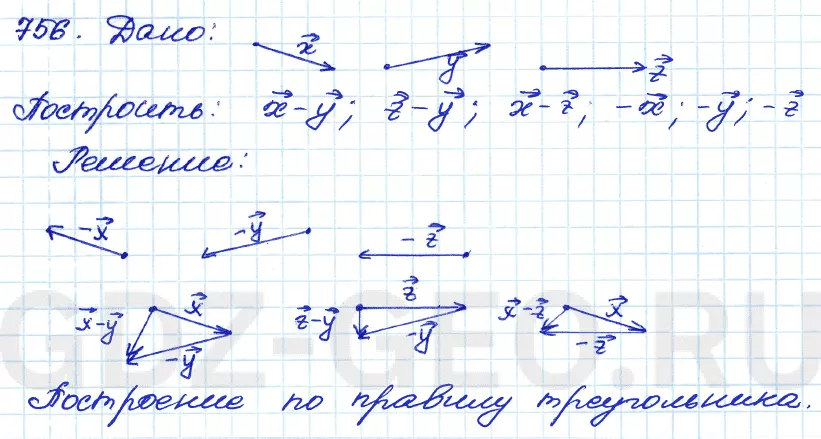 756. Дано: x⃗ y⃗ z⃗
Построить: x⃗ - y⃗; z⃗ - y⃗; x⃗ - z⃗; -x⃗; -y⃗; -z⃗
Решение:
-x⃗ -y⃗ -z⃗
x⃗ z⃗ x⃗ - z⃗ x⃗
x⃗ - y⃗ -y⃗ z⃗ - y⃗ -y⃗ -z⃗
GDZ-GEO.RU
Построение по правилу треугольника.